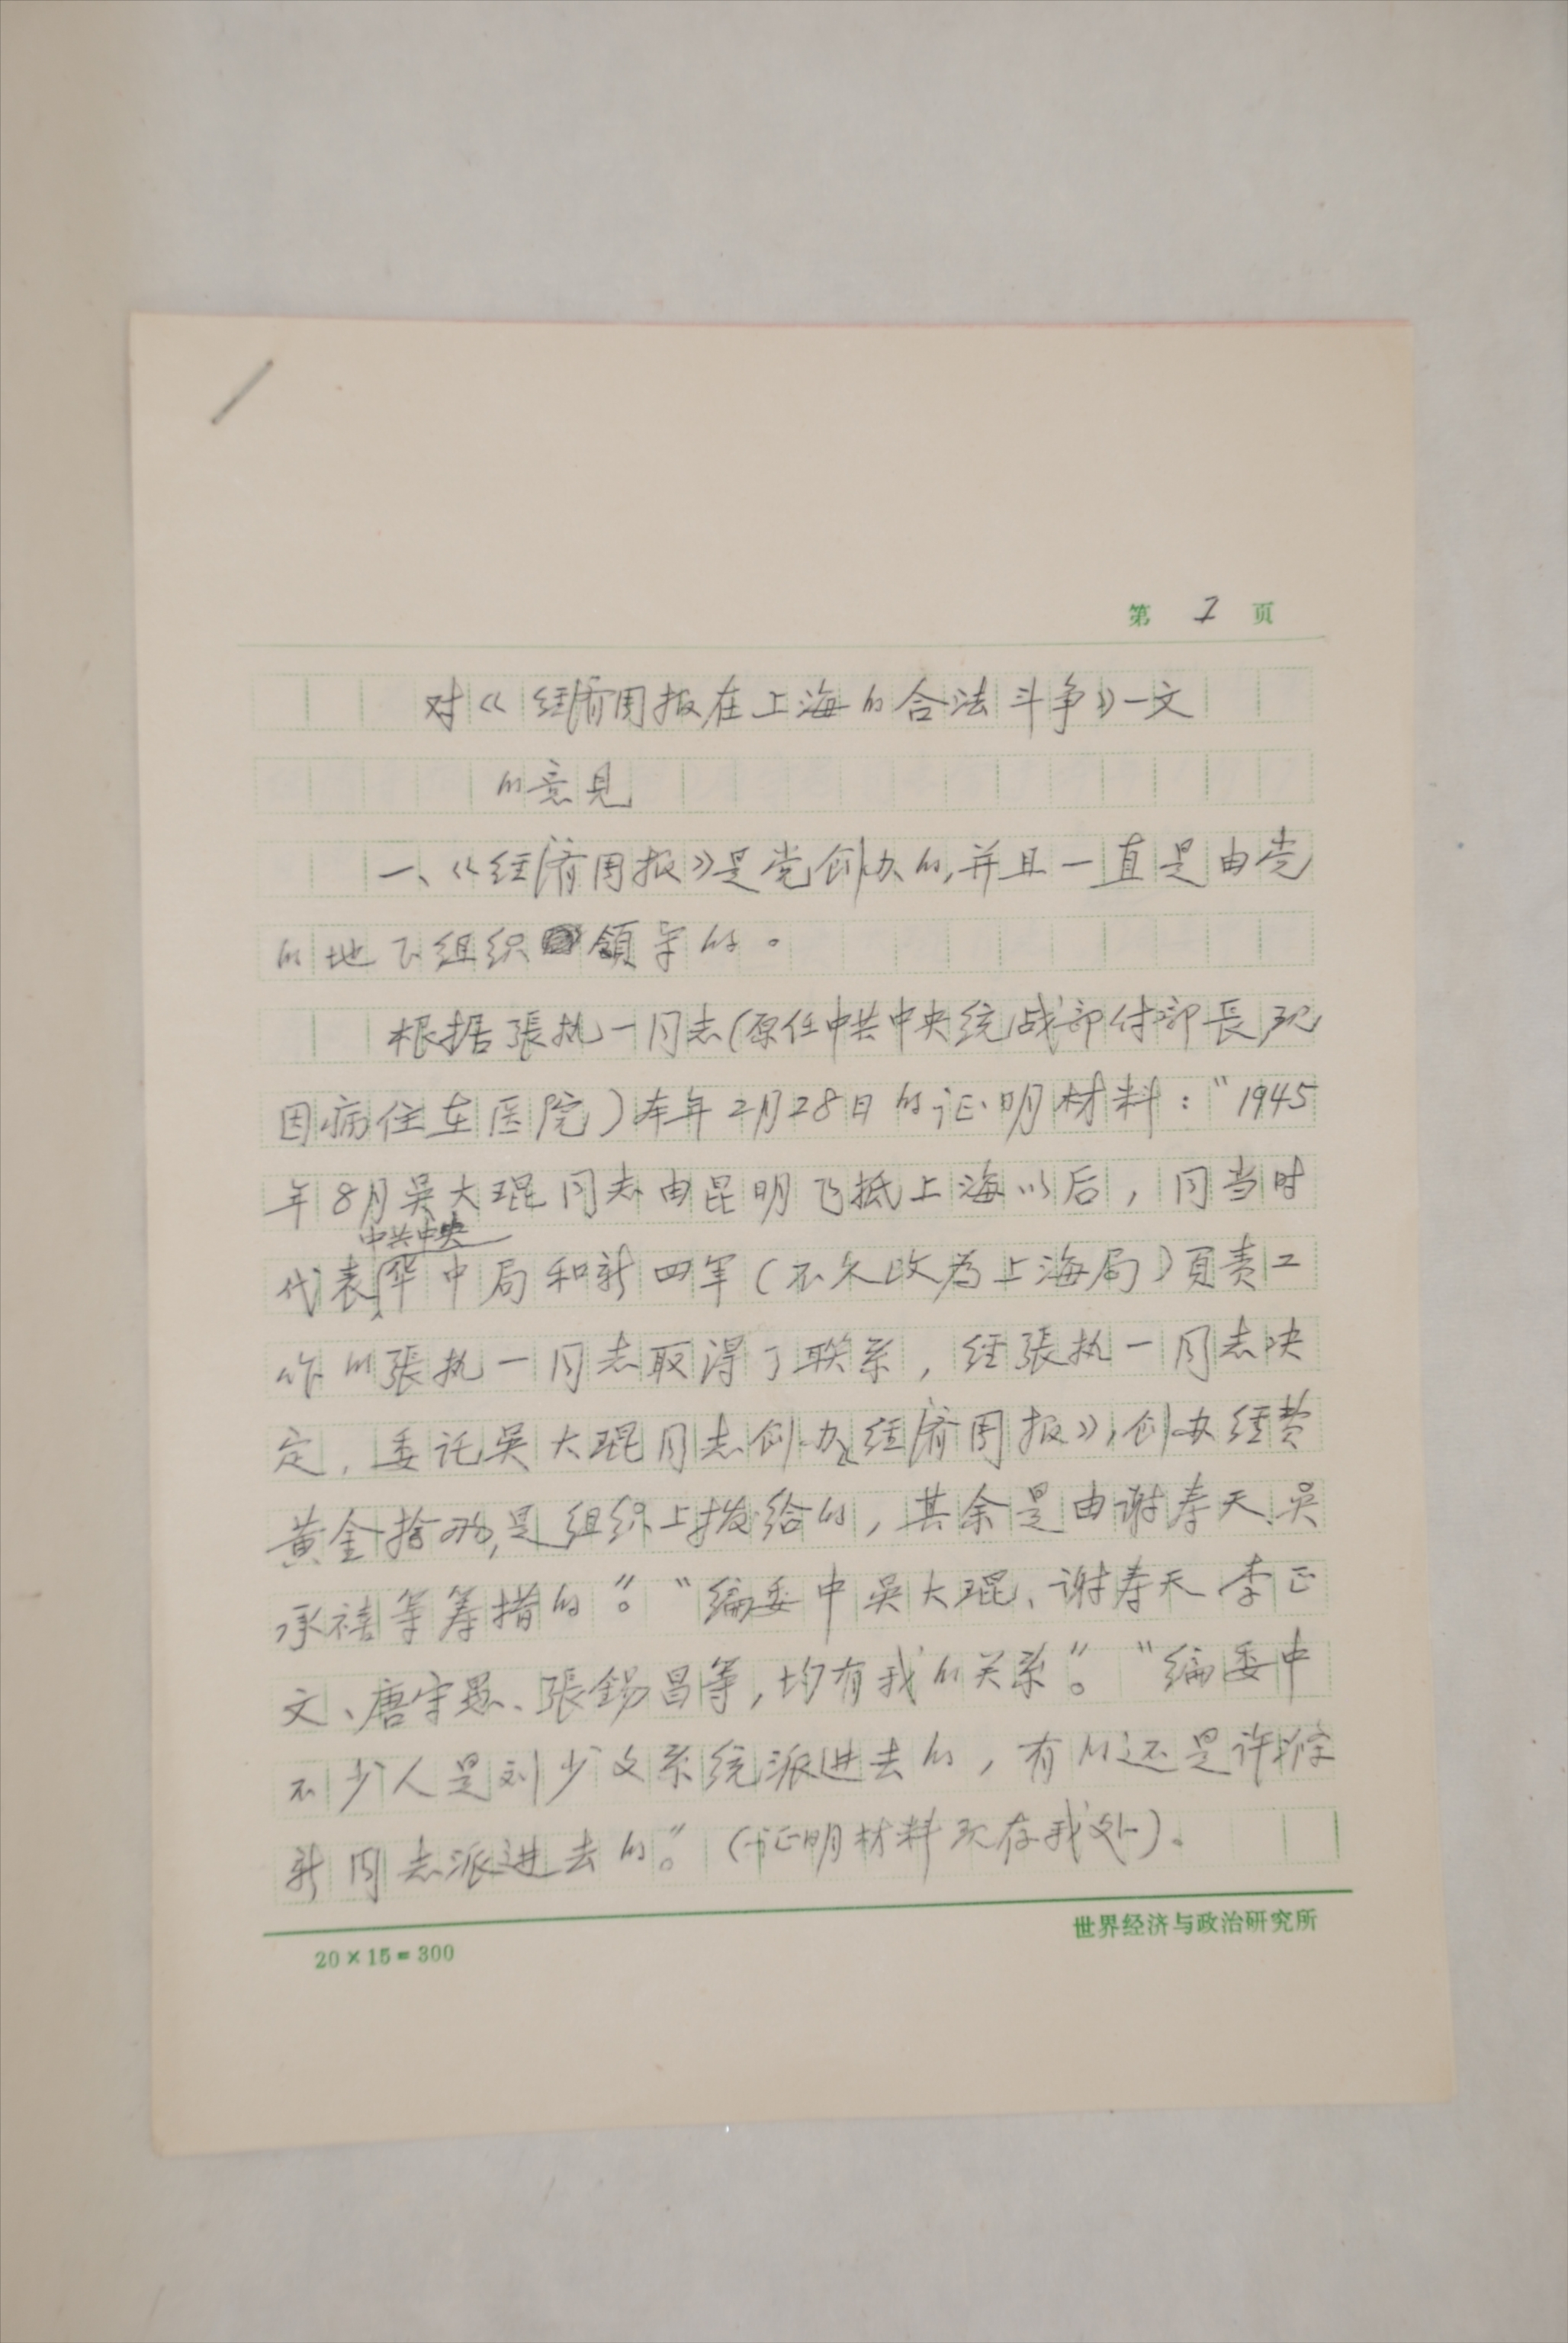 第 1 页
对《经济周报在上海的合法斗争》一文
的意见
一、《经济周报》是党创办的,并且一直是由党
的地下组织領导的。
根据張执一同志(原任中共中央统战部付部長现
因病住在医院)本年2月28日的证明材料:“1945
年8月吴大琨同志由昆明飞抵上海以后,同当时
代表中共中央华中局和新四军(不久改为上海局)頁责工
作的張执一同志取得了联系,经張执一同志决
定,委托吴大琨同志创办《经济周报》,创办经费
黄金拾两,是组织上拨给的,其余是由谢寿天、吴
承禧等筹措的”。“编委中吴大琨、谢寿天、李正
文、唐守愚、張錫昌等,均有我的关系”。“编委中
不少人是刘少文系统派进去的,有的还是许涤
新同志派进去的。”(证明材料现存我处)。
世界经济与政治研究所
20×15=300